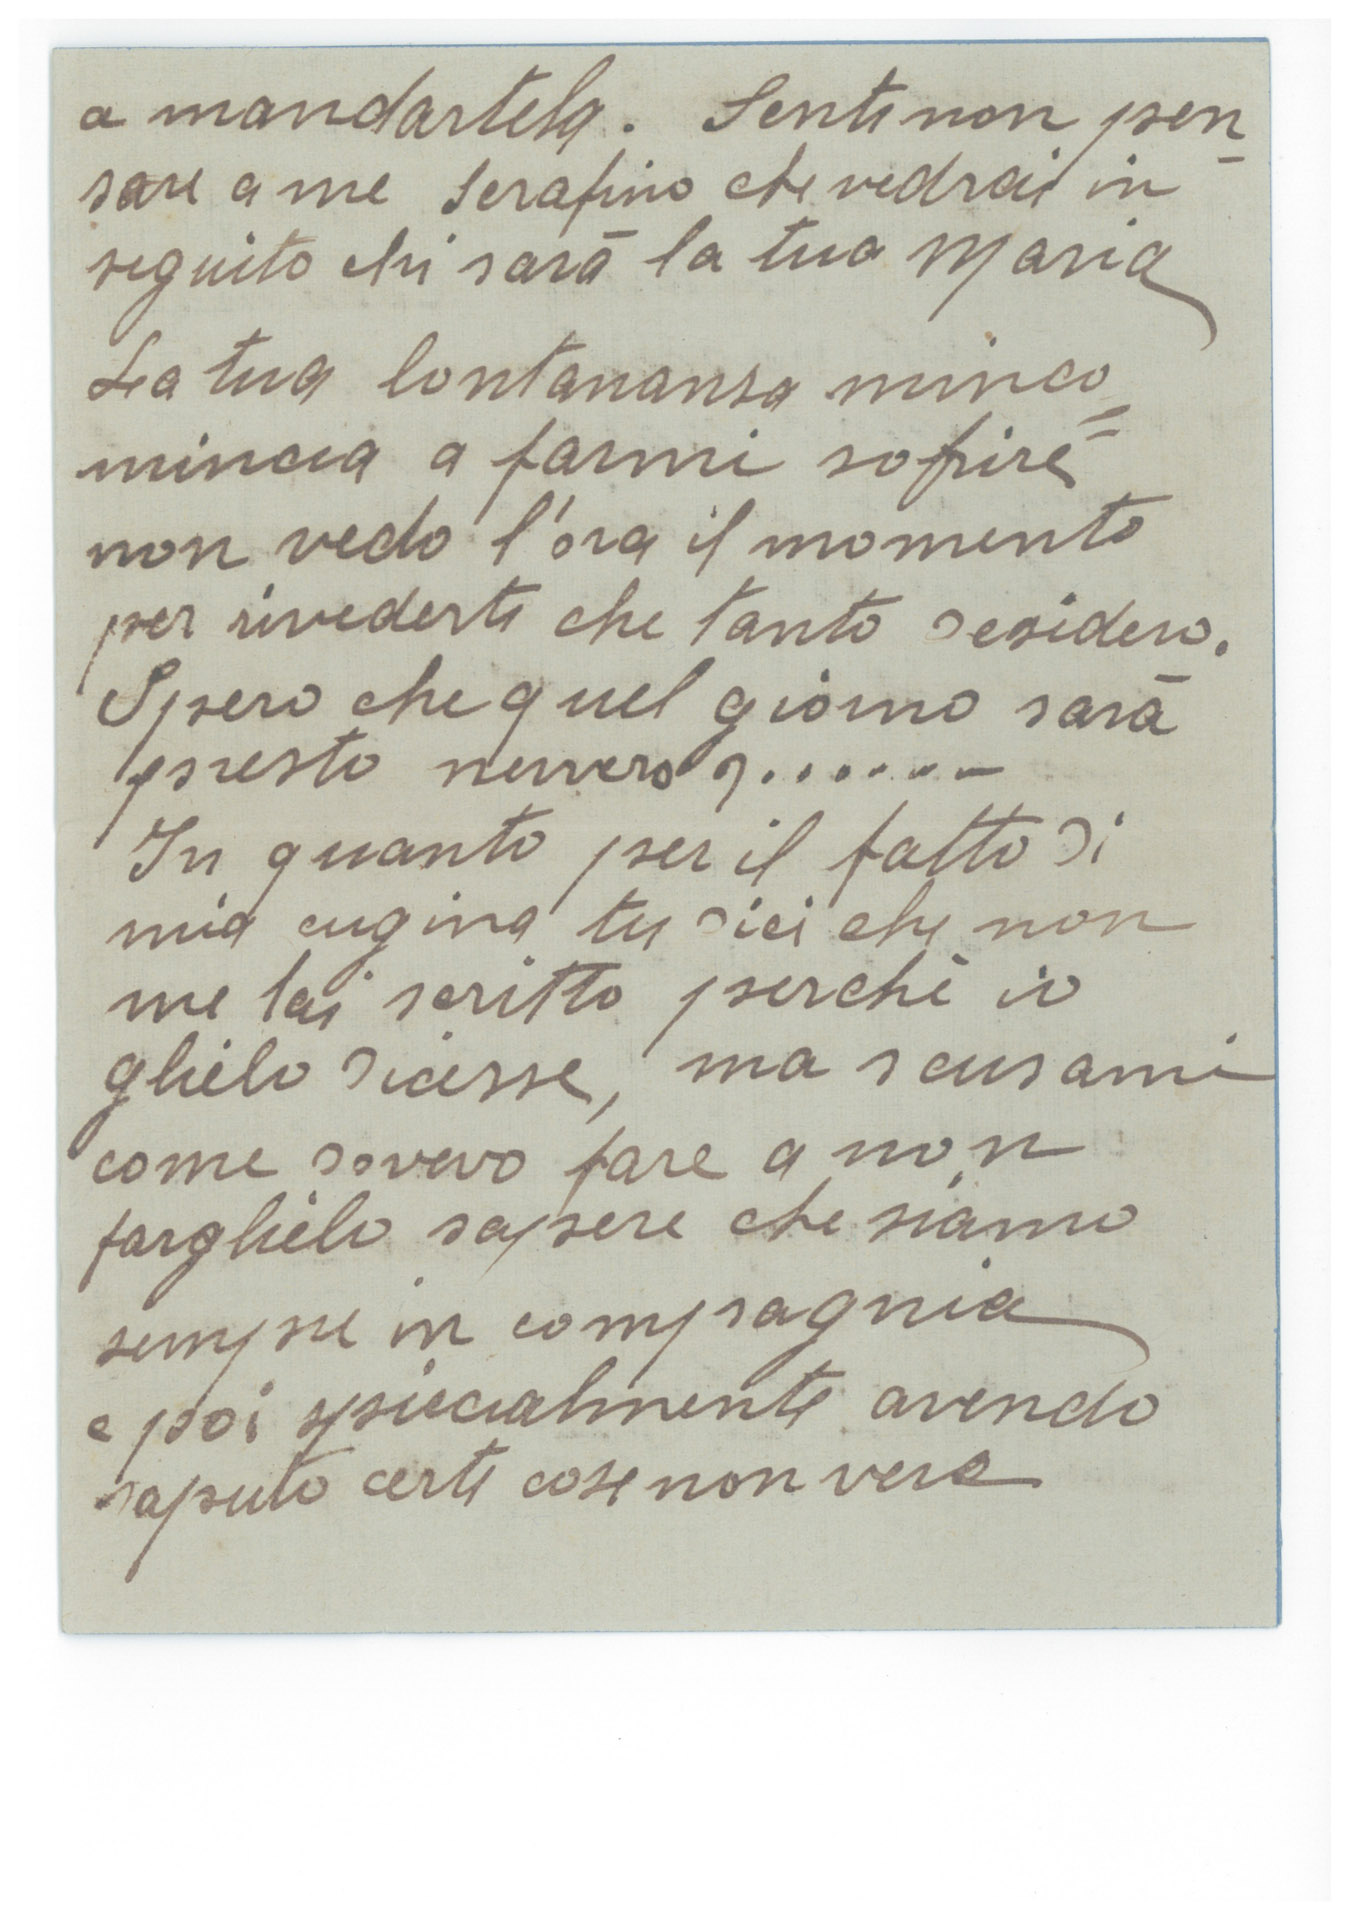 a mandartela. Senti non pen-
sare a me Serafino che vedrai in
seguito chi sarà la tua Maria
La tua lontananza minco=
mincia a farmi sofrire
non vedo l'ora il momento
per rivederti che tanto desidero.
Spero che quel giorno sarà
presto nevvero?.......
In quanto per il fatto di
mia cugina tu dici che non
me lai scritto perchè io
glielo dicesse, ma scusami
come dovevo fare a non
farglielo sapere che siamo
sempre in compagnia
e poi speciecialmente avendo
saputo certe cose non vere